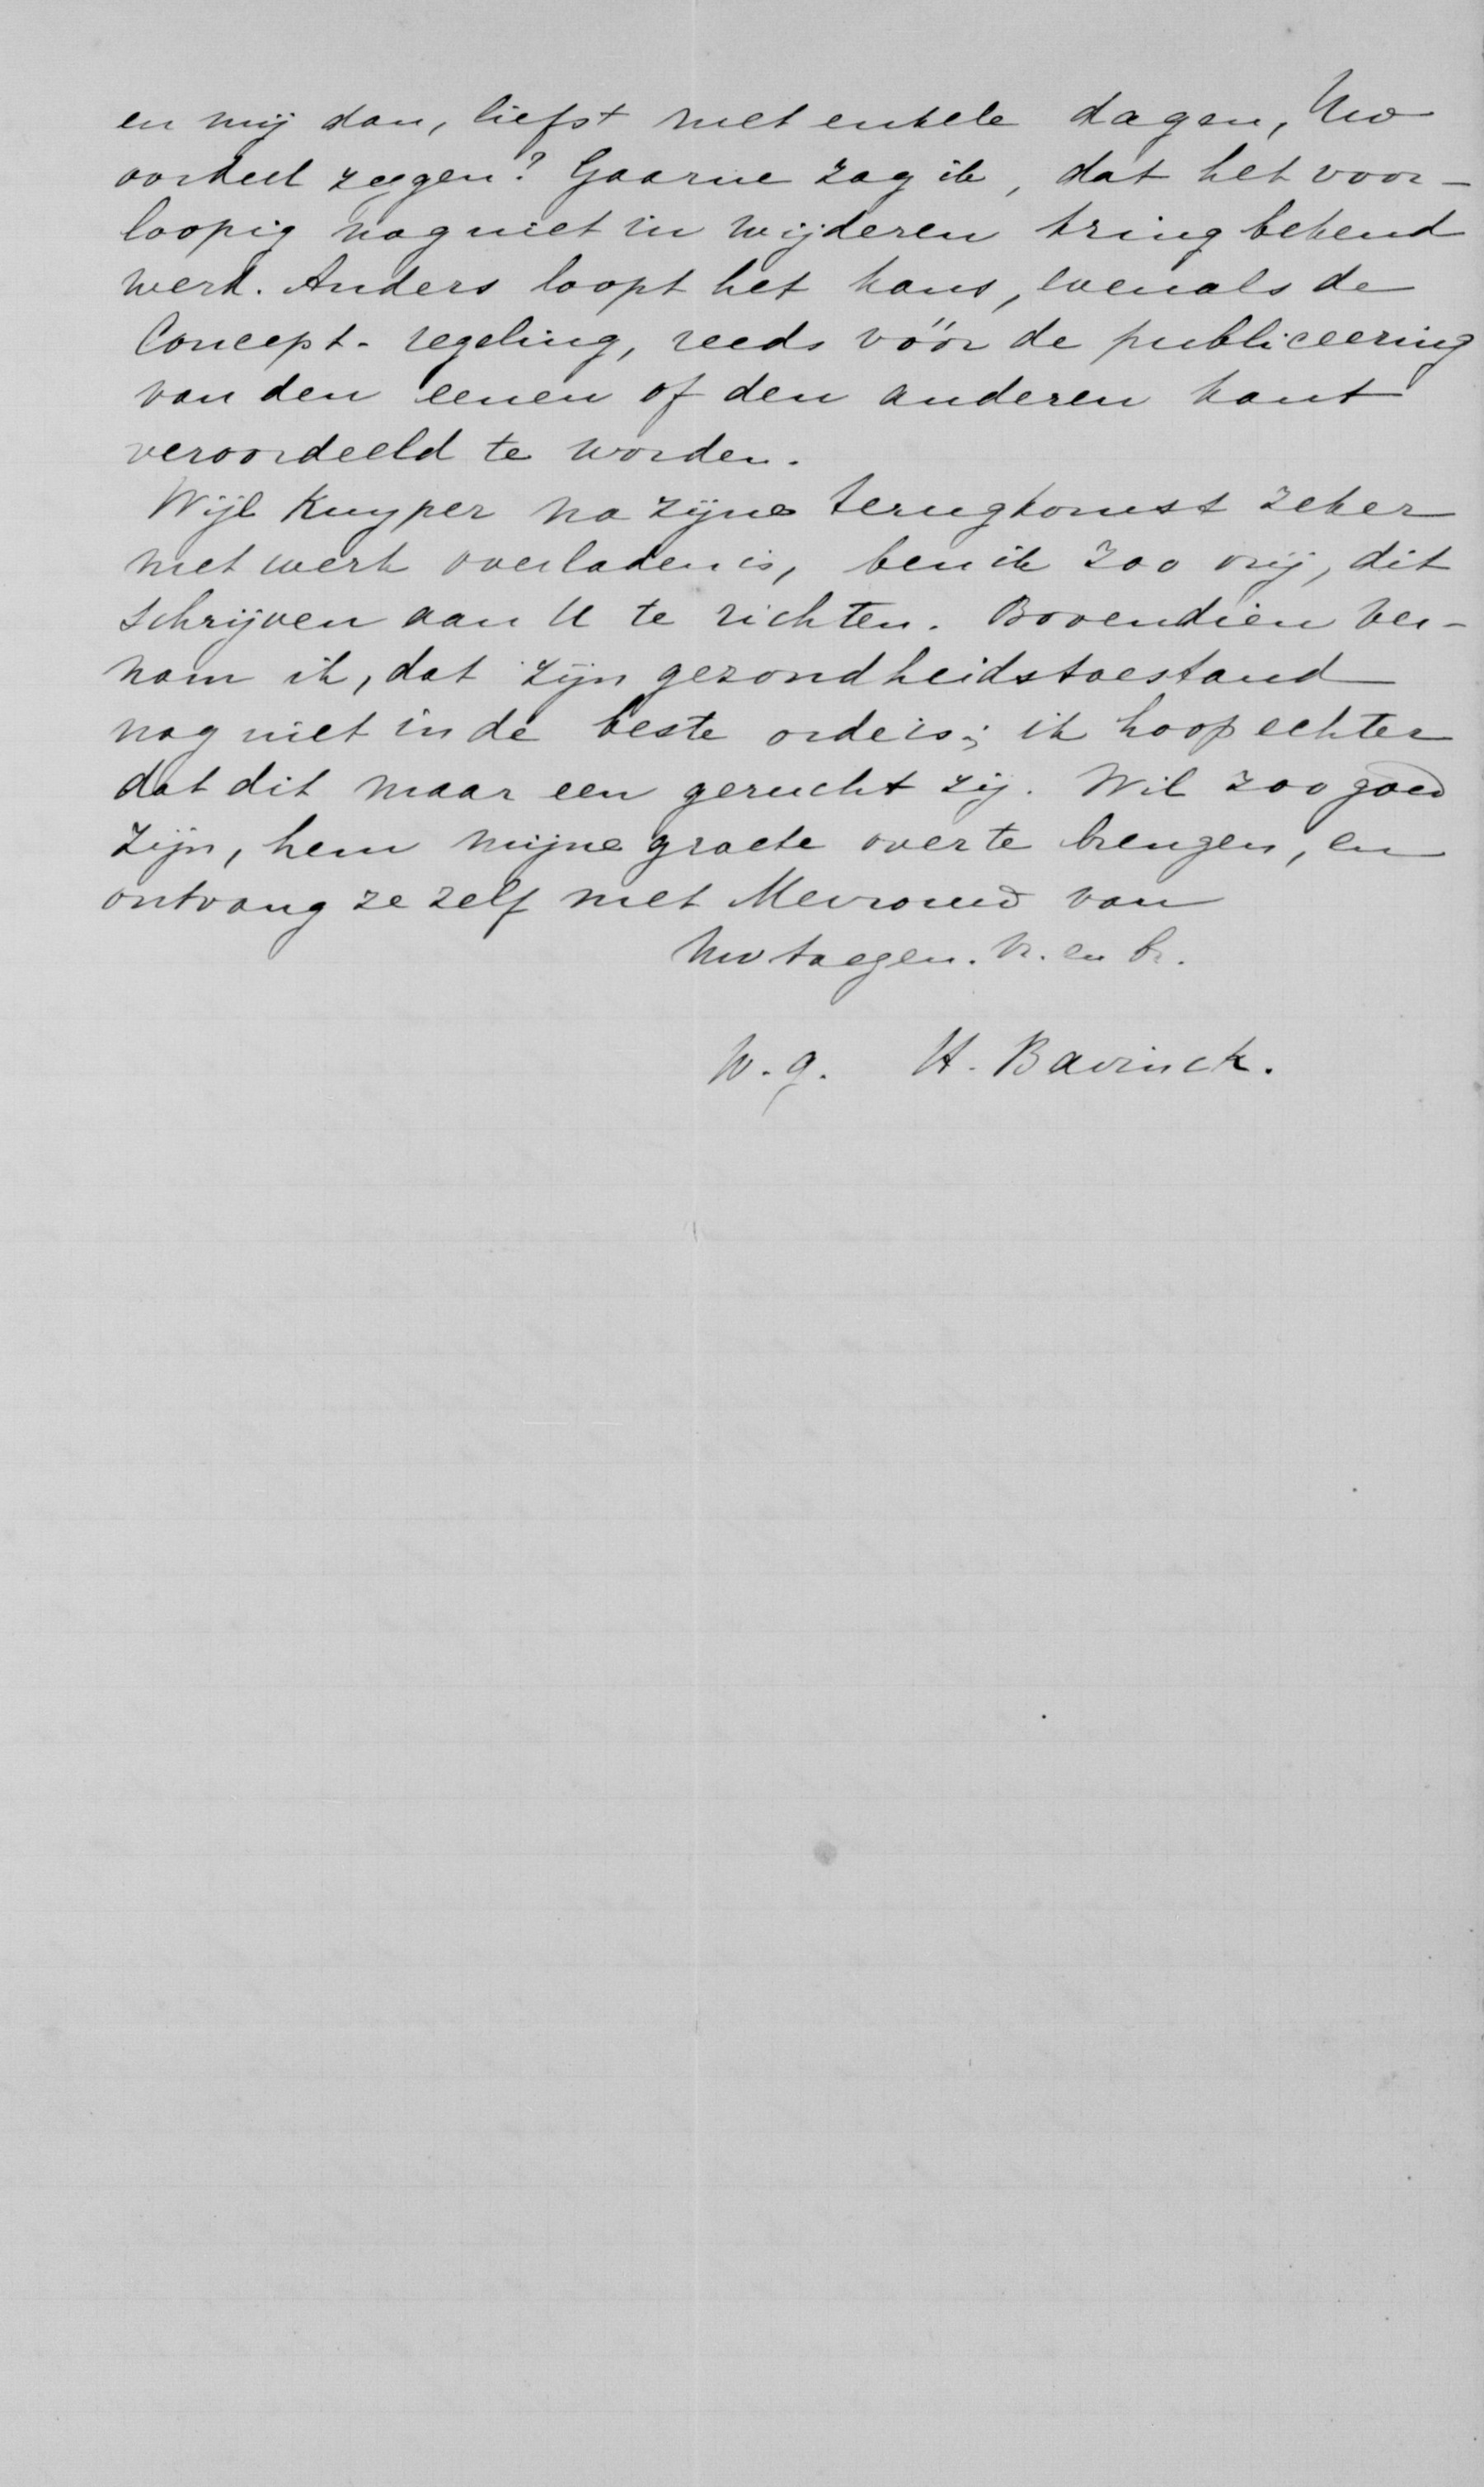 en mij dan, liefst met enkele dagen, Uw
oordeel zeggen? Gaarne zag ik, dat het voor-
loopig nog niet in wijderen kring bekend
werd. Anders loopt het kans, evenals de
Concept- regeling, reeds vóór de publiceering
van den eenen of den anderen kant
veroordeeld te worden.
Wijl Kuyper na zijne terugkomst zeker
met werk overladen is, ben ik zoo vrij, dit
schrijven aan U te richten. Bovendien ver-
nam ik, dat zijn gezondheidstoestand
nog niet in de beste orde is; ik hoop echter
dat dit maar een gerucht zij. Wil zoo goed
zijn, hem mijne groete over te brengen, en
ontvang ze zelf met Mevrouw van
Uw toegen. vr. en br.
w.g. H. Bavinck.